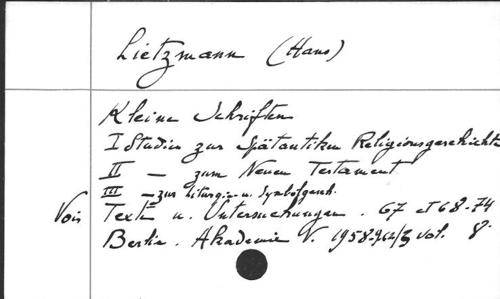 Lietzmann (Hans)
Kleine Schriften
I Studien zur Spätantiken Religionsgeschichte
II — zum Neuen Testament
III — zur Liturgie- u. Symbolgesch.
Vois Texte u. Untersuchungen. 67 et 68-74
Berlin. Akademie V. 1958-962/3 vol. 8°